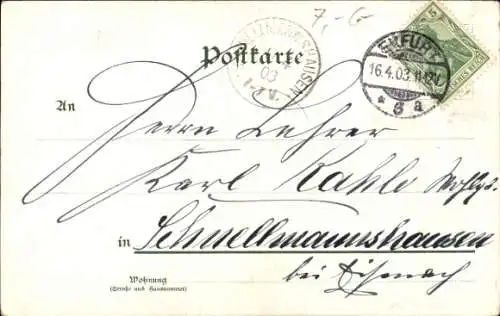 7,- G
Postkarte
ERFURT
16.4.03. 11-12V.
* 3 a
5
03
1-2 V.
An
Herrn Lehrer
Karl Kahle Wohlg.
in Schnellmannshausen
bei Eisenach
Wohnung
(Straße und Hausnummer)